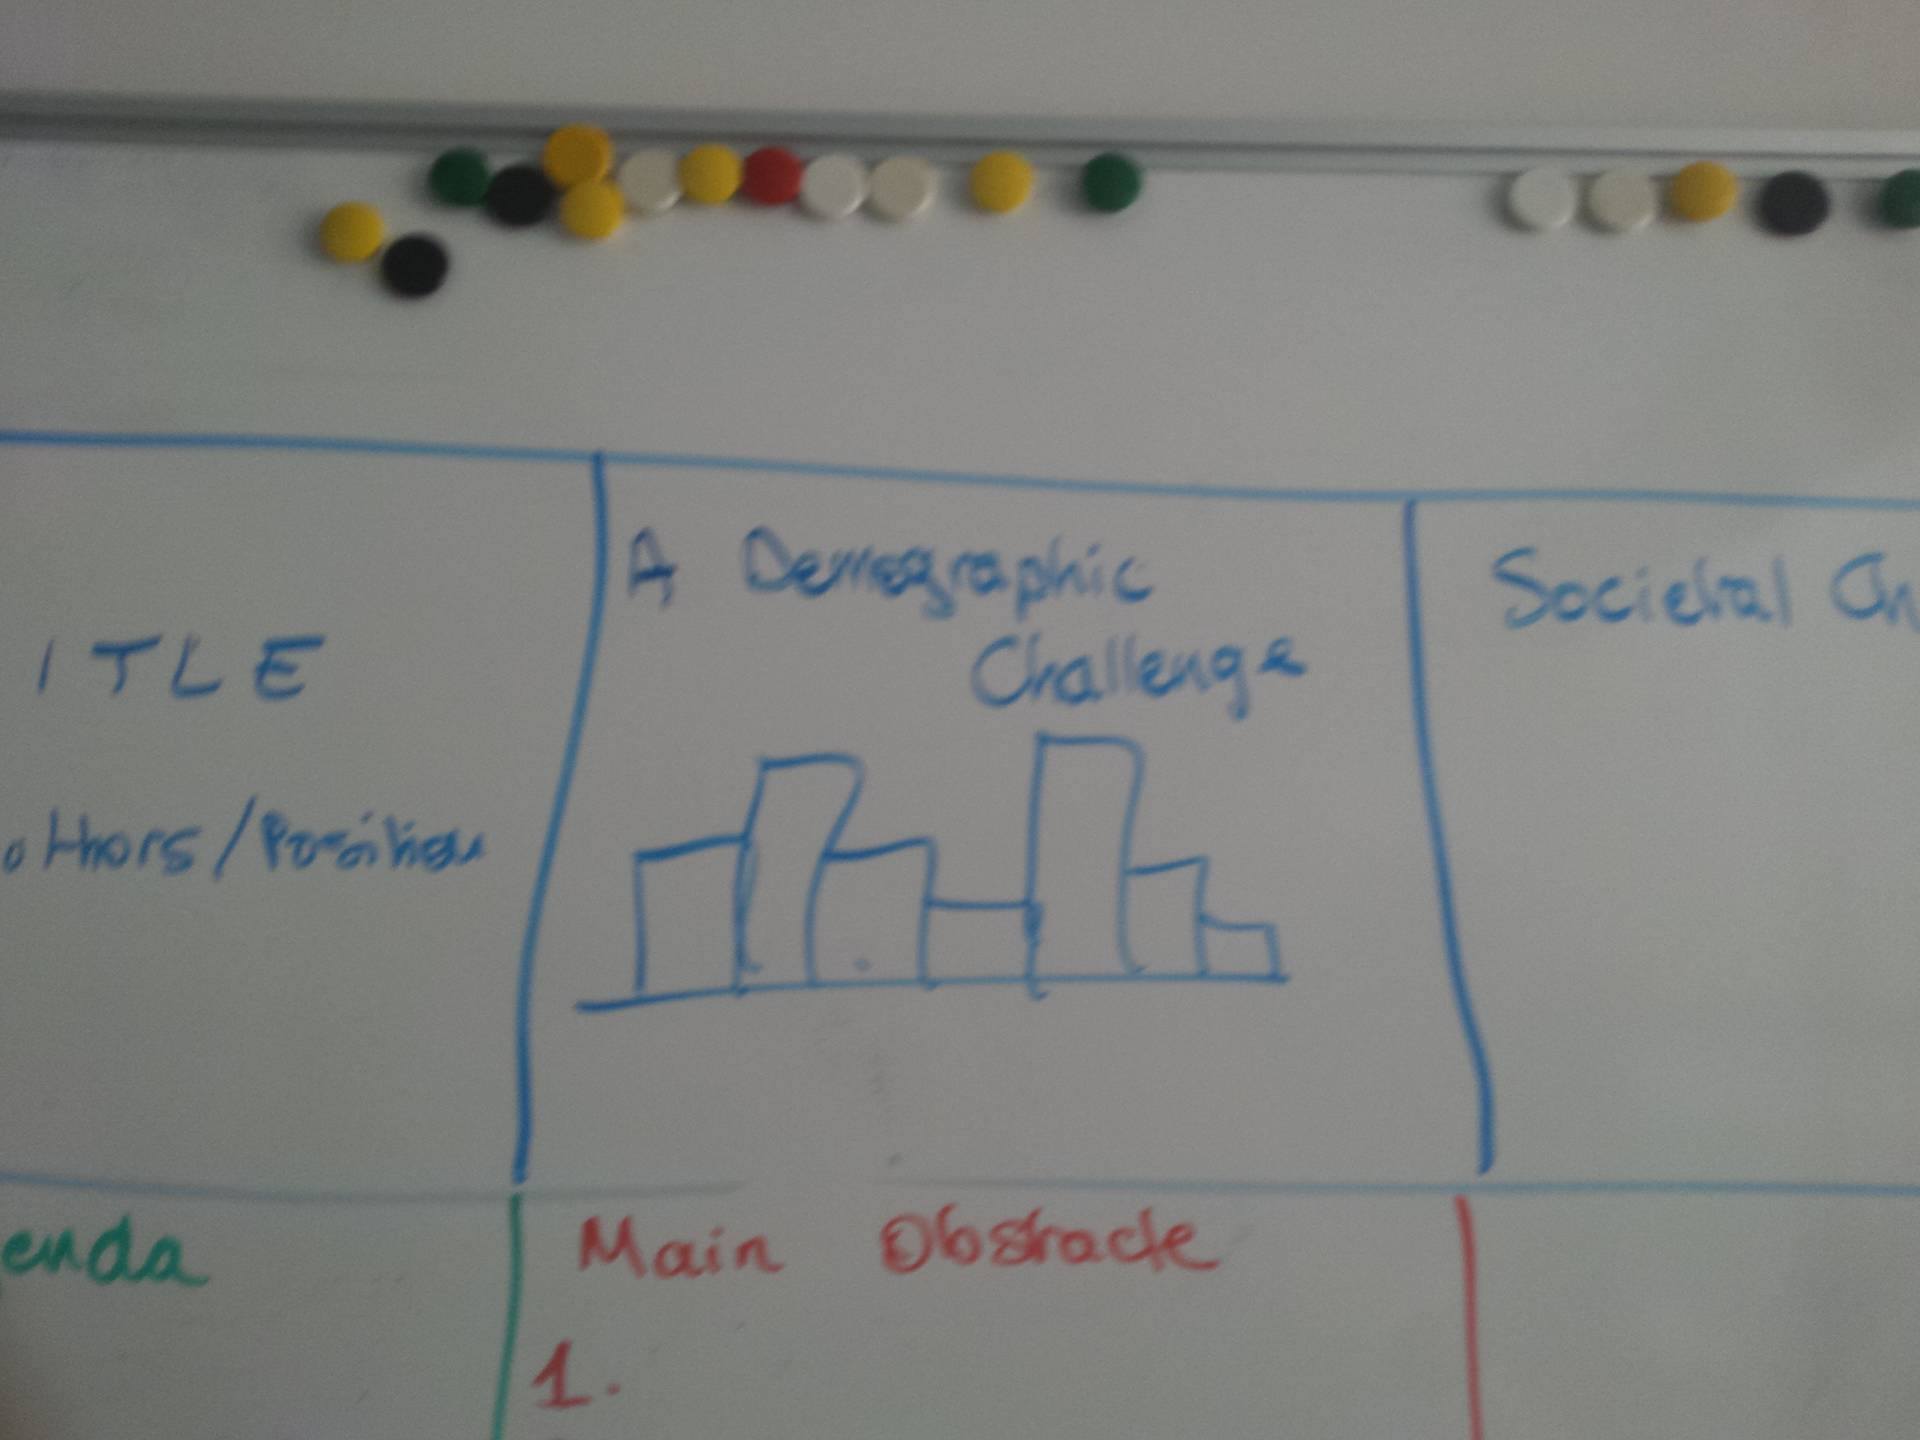 ITLE
othors/Position
A Demographic
Challenge
Societal Ch
enda
Main Obstracle
1.